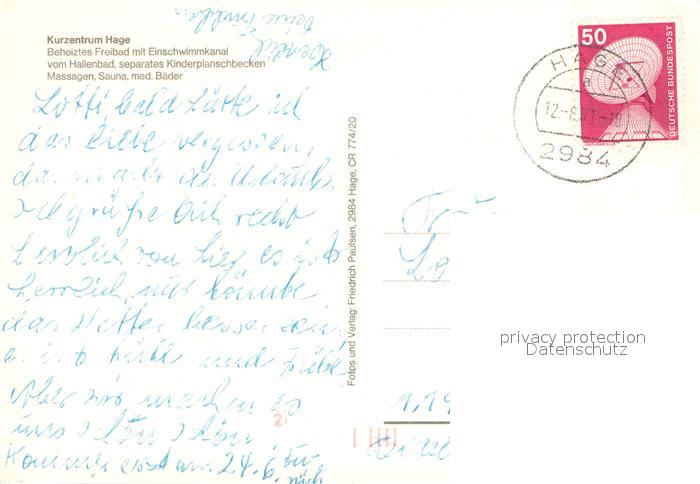 Kurzentrum Hage
Beheiztes Freibad mit Einschwimmkanal
vom Hallenbad, separates Kinderplanschbecken
Massagen, Sauna, med. Bäder
Lotti, bald hätte ich
das liebe vergessen,
das macht der Urlaub.
Ich grüße Dich recht
herzlich von hier es ist
herrlich, nur könnte
das Wetter besser sein
es ist kühl und trübe
Aber wir machen es
uns schön schön
Kommen erst am 24.6. zurück
Deine Freundin
Fotos und Verlag: Friedrich Paulsen, 2984 Hage, CR 774/20
50
DEUTSCHE BUNDESPOST
HAGE
a
12.-6.81-1
2984
Lo
1.19
21
privacy protection
Datenschutz